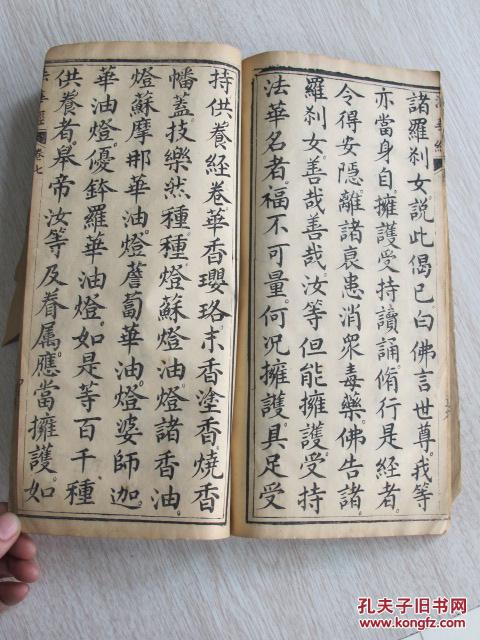 諸羅刹女說此偈已白佛言世尊。我等
亦當身自。擁護受持讀誦脩行是經者。
令得安隱。離諸衰患。消眾毒藥。佛告諸
羅刹女。善哉善哉。汝等但能擁護。受持
法華名者。福不可量。何況擁護。具足受
持。供養經卷。華香瓔珞。末香塗香燒香
幡蓋。技樂。然種種燈。蘇燈油燈。諸香油
燈。蘇摩那華油燈。薝蔔華油燈。婆師迦
華油燈。優鉢羅華油燈。如是等百千種
供養者。皋帝。汝等及眷屬。應當擁護。如
法華經
卷七
孔夫子旧书网
www.kongfz.com